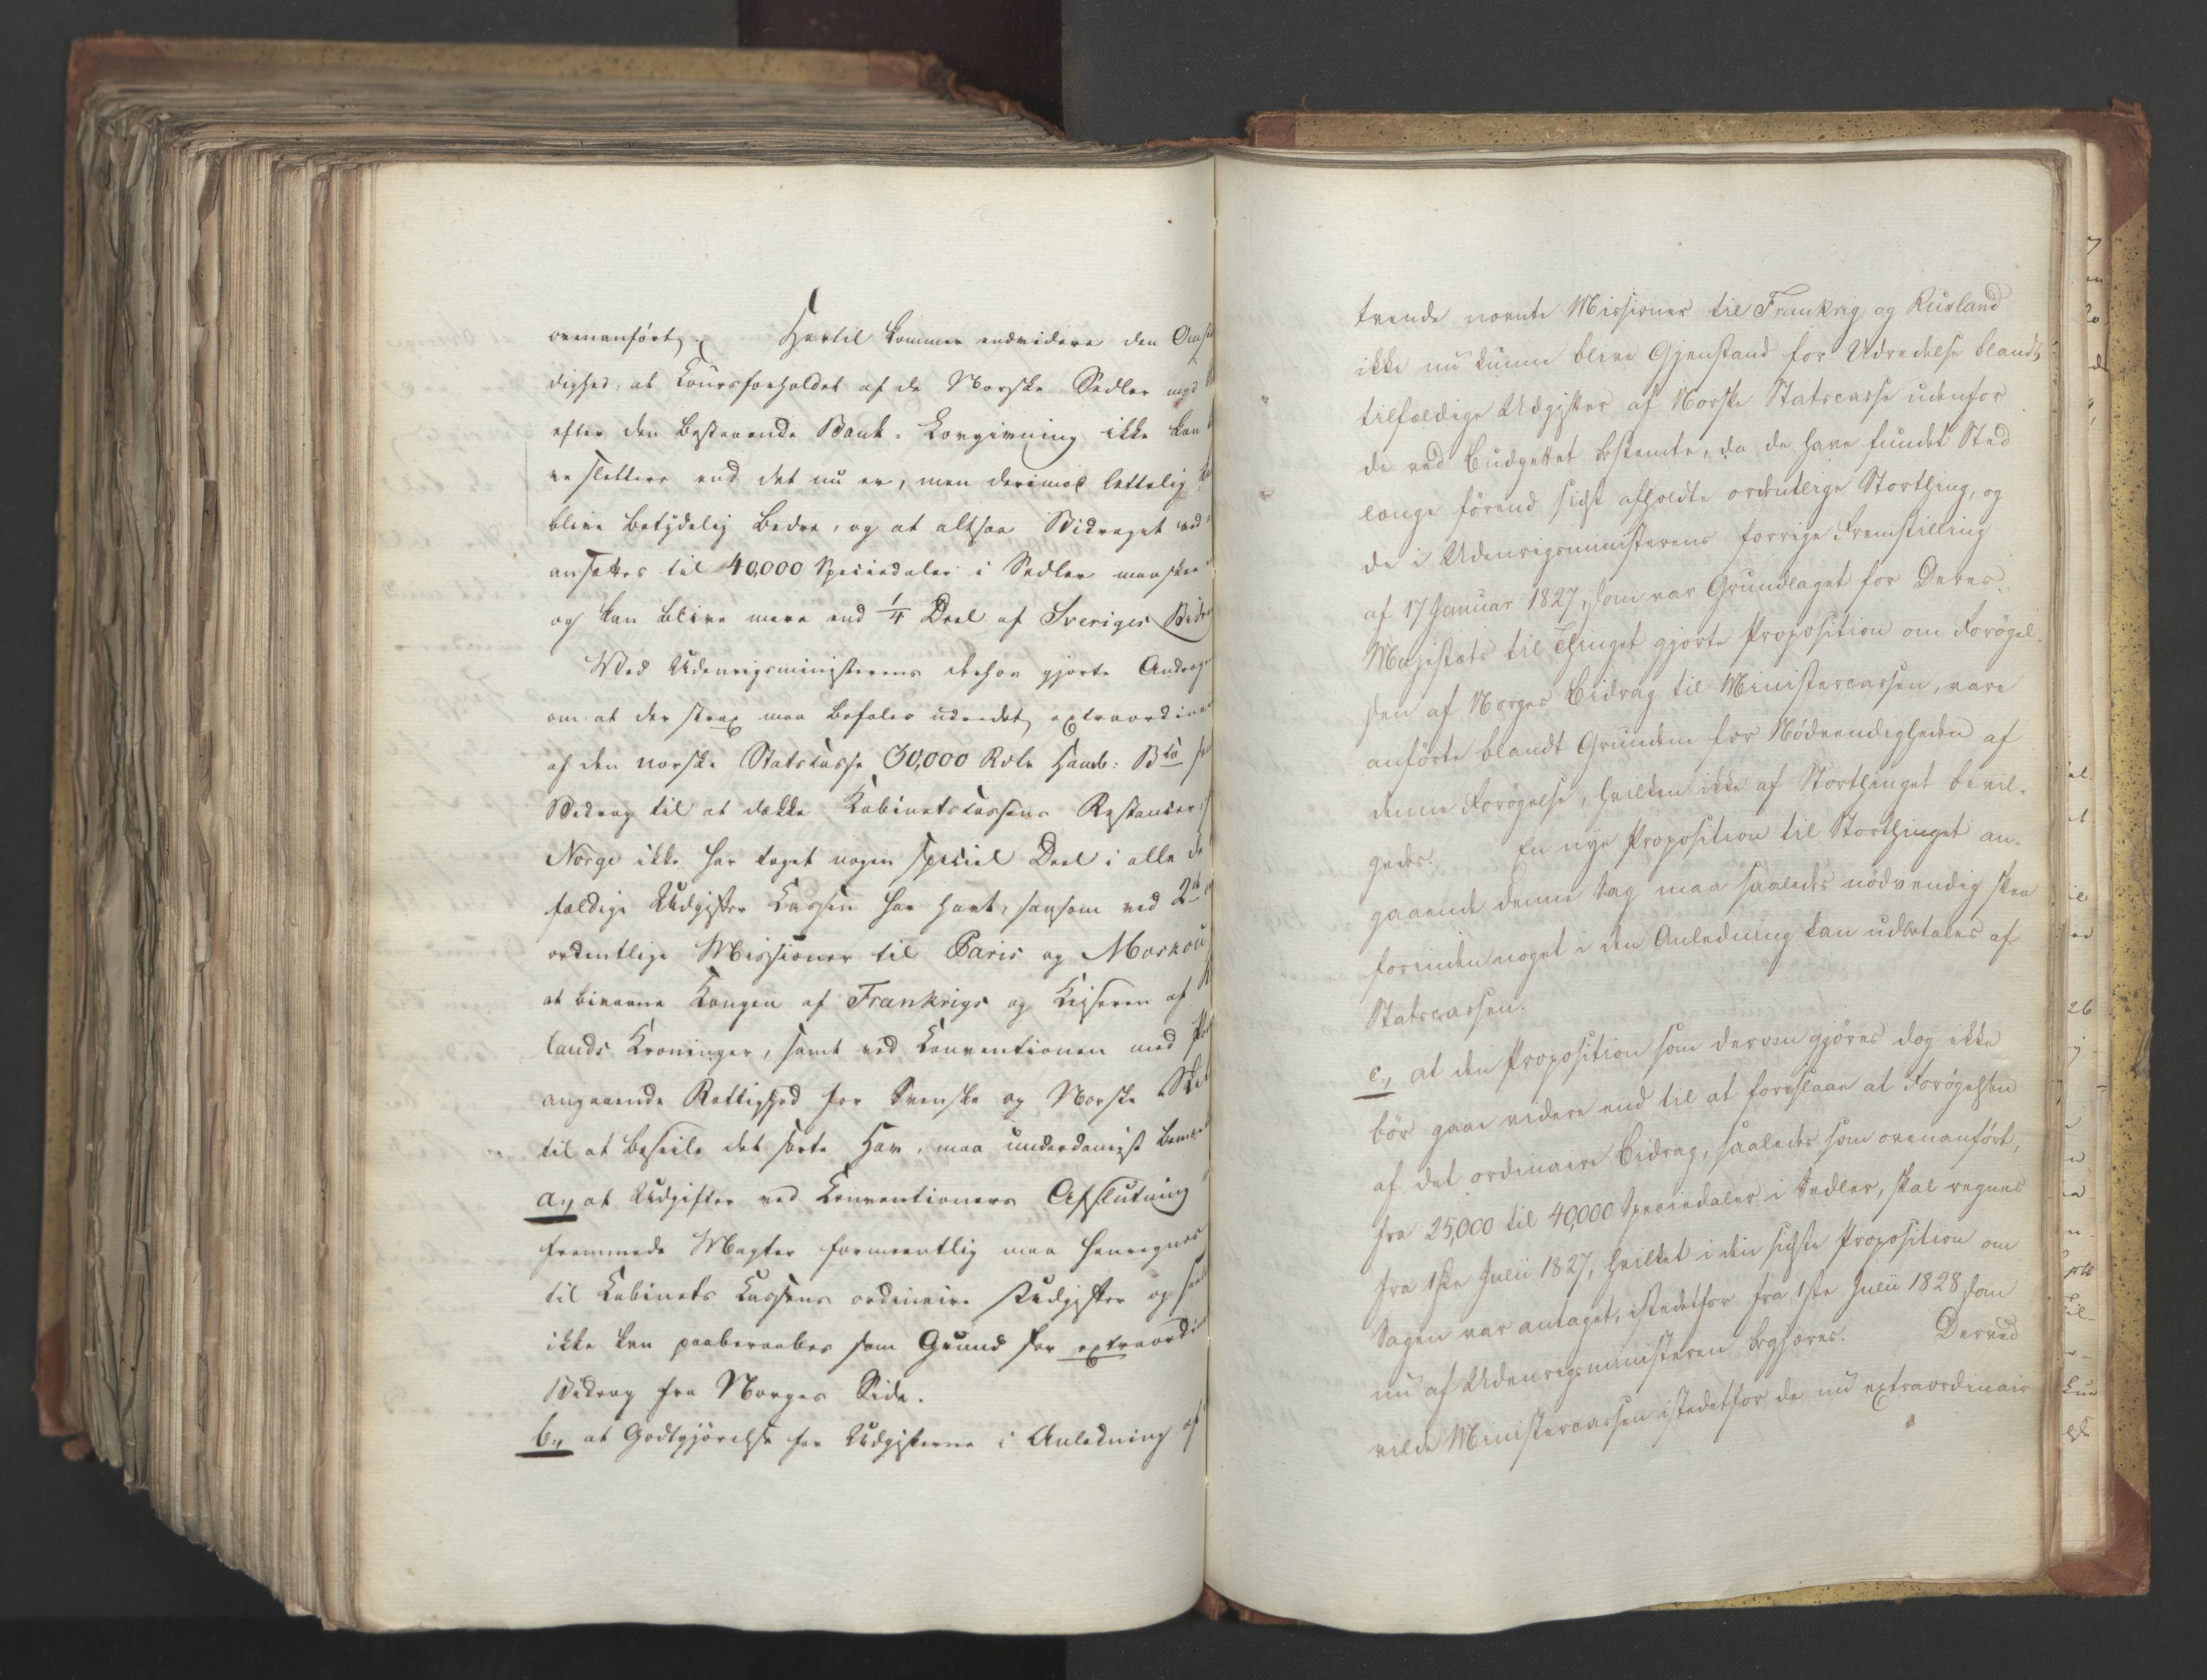 ovenanført. Hertil kommer endvidere den Omst
dighed, at Coursforholdet af de Norske Sedler mod
efter den bestaaende Bank-Lovgivning ikke kan
re slettere end det nu er, men derimod lettelig
blive betydelig bedre, og at altsaa Bidraget ved
ansættes til 40,000 Speciedaler i Sedler maaskee
og kan blive mere end 1/4 Deel af Sveriges Bidr
Ved Udenrigsministerens derhos gjorte Andrag
om at der strax maa befales udredet, extraordinai
af den norske Statskasse 30,000 Rdlr Hamb: Bco so
Bidrag til at dække Kabinetscassens Restancer,
Norge ikke har taget nogen speciel Deel i alle de
fældige Udgifter Cassen har havt, saasom ved 2de
ordentlige Missioner til Paris og Moskou
at bivaane Kongen af Frankrigs og Keiseren af
lands Kroninger, samt ved Conventionen med
angaaende Rettighed for Svenske og Norske Ski
til at beseile det sorte Hav, maa underdanigst bemær
a., at Udgifter ved Conventioners Afslutning
fremmede Magter formeentlig maa henregnes
til Cabinets Cassens ordinaire Udgifter og saal
ikke kan paaberaabes som Grund for extraordin
Bidrag fra Norges Side.
b., at Godtgjørelse for Udgifterne i Anledning af
tvende nævnte Missioner til Frankrig og Rusland
ikke nu kunne blive Gjenstand for Udredelse blandt
tilfældige Udgifter af Norske Statscasse udenfor
de ved Budgettet bestemte, da de have fundet Sted
længe førend sidst afholdte ordentlige Storthing, og
de i Udenrigsministerens forrige Fremstilling
af 17 Januar 1827, som var Grundlaget for Deres
Majestæts til Thinget gjorte Proposition om Forøgel-
sen af Norges Bidrag til Ministercassen, vare
anførte blandt Grundene for Nødvendigheden af
denne Forøgelse, hvilken ikke af Storthinget bevil-
gedes. En nye Proposition til Storthinget an-
gaaende denne Sag maa saaledes nødvendig skee
forinden noget i den Anledning kan udbetales af
Statscassen.
c., at den Proposition som derom gjøres dog ikke
bør gaae videre end til at foreslaae at Forøgelsen
af det ordinaire Bidrag, saaledes som ovenanført,
fra 25,000 til 40,000 Speciedaler i Sedler, skal regnes
fra 1ste Julii 1827, hvilket i den sidste Proposition om
Sagen var antaget, istedetfor fra 1ste Julii 1828 som
nu af Udenrigsministeren begjæres. Derved
vilde Ministercassen istedetfor de nu extraordinair